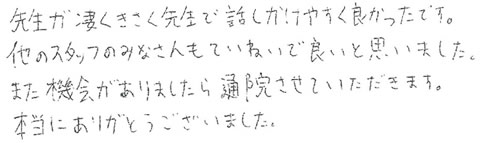 先生が凄くきさく先生で話しかけやすく良かったです。
他のスタッフのみなさんもていねいで良いと思いました。
また機会がありましたら通院させていただきます。
本当にありがとうございました。